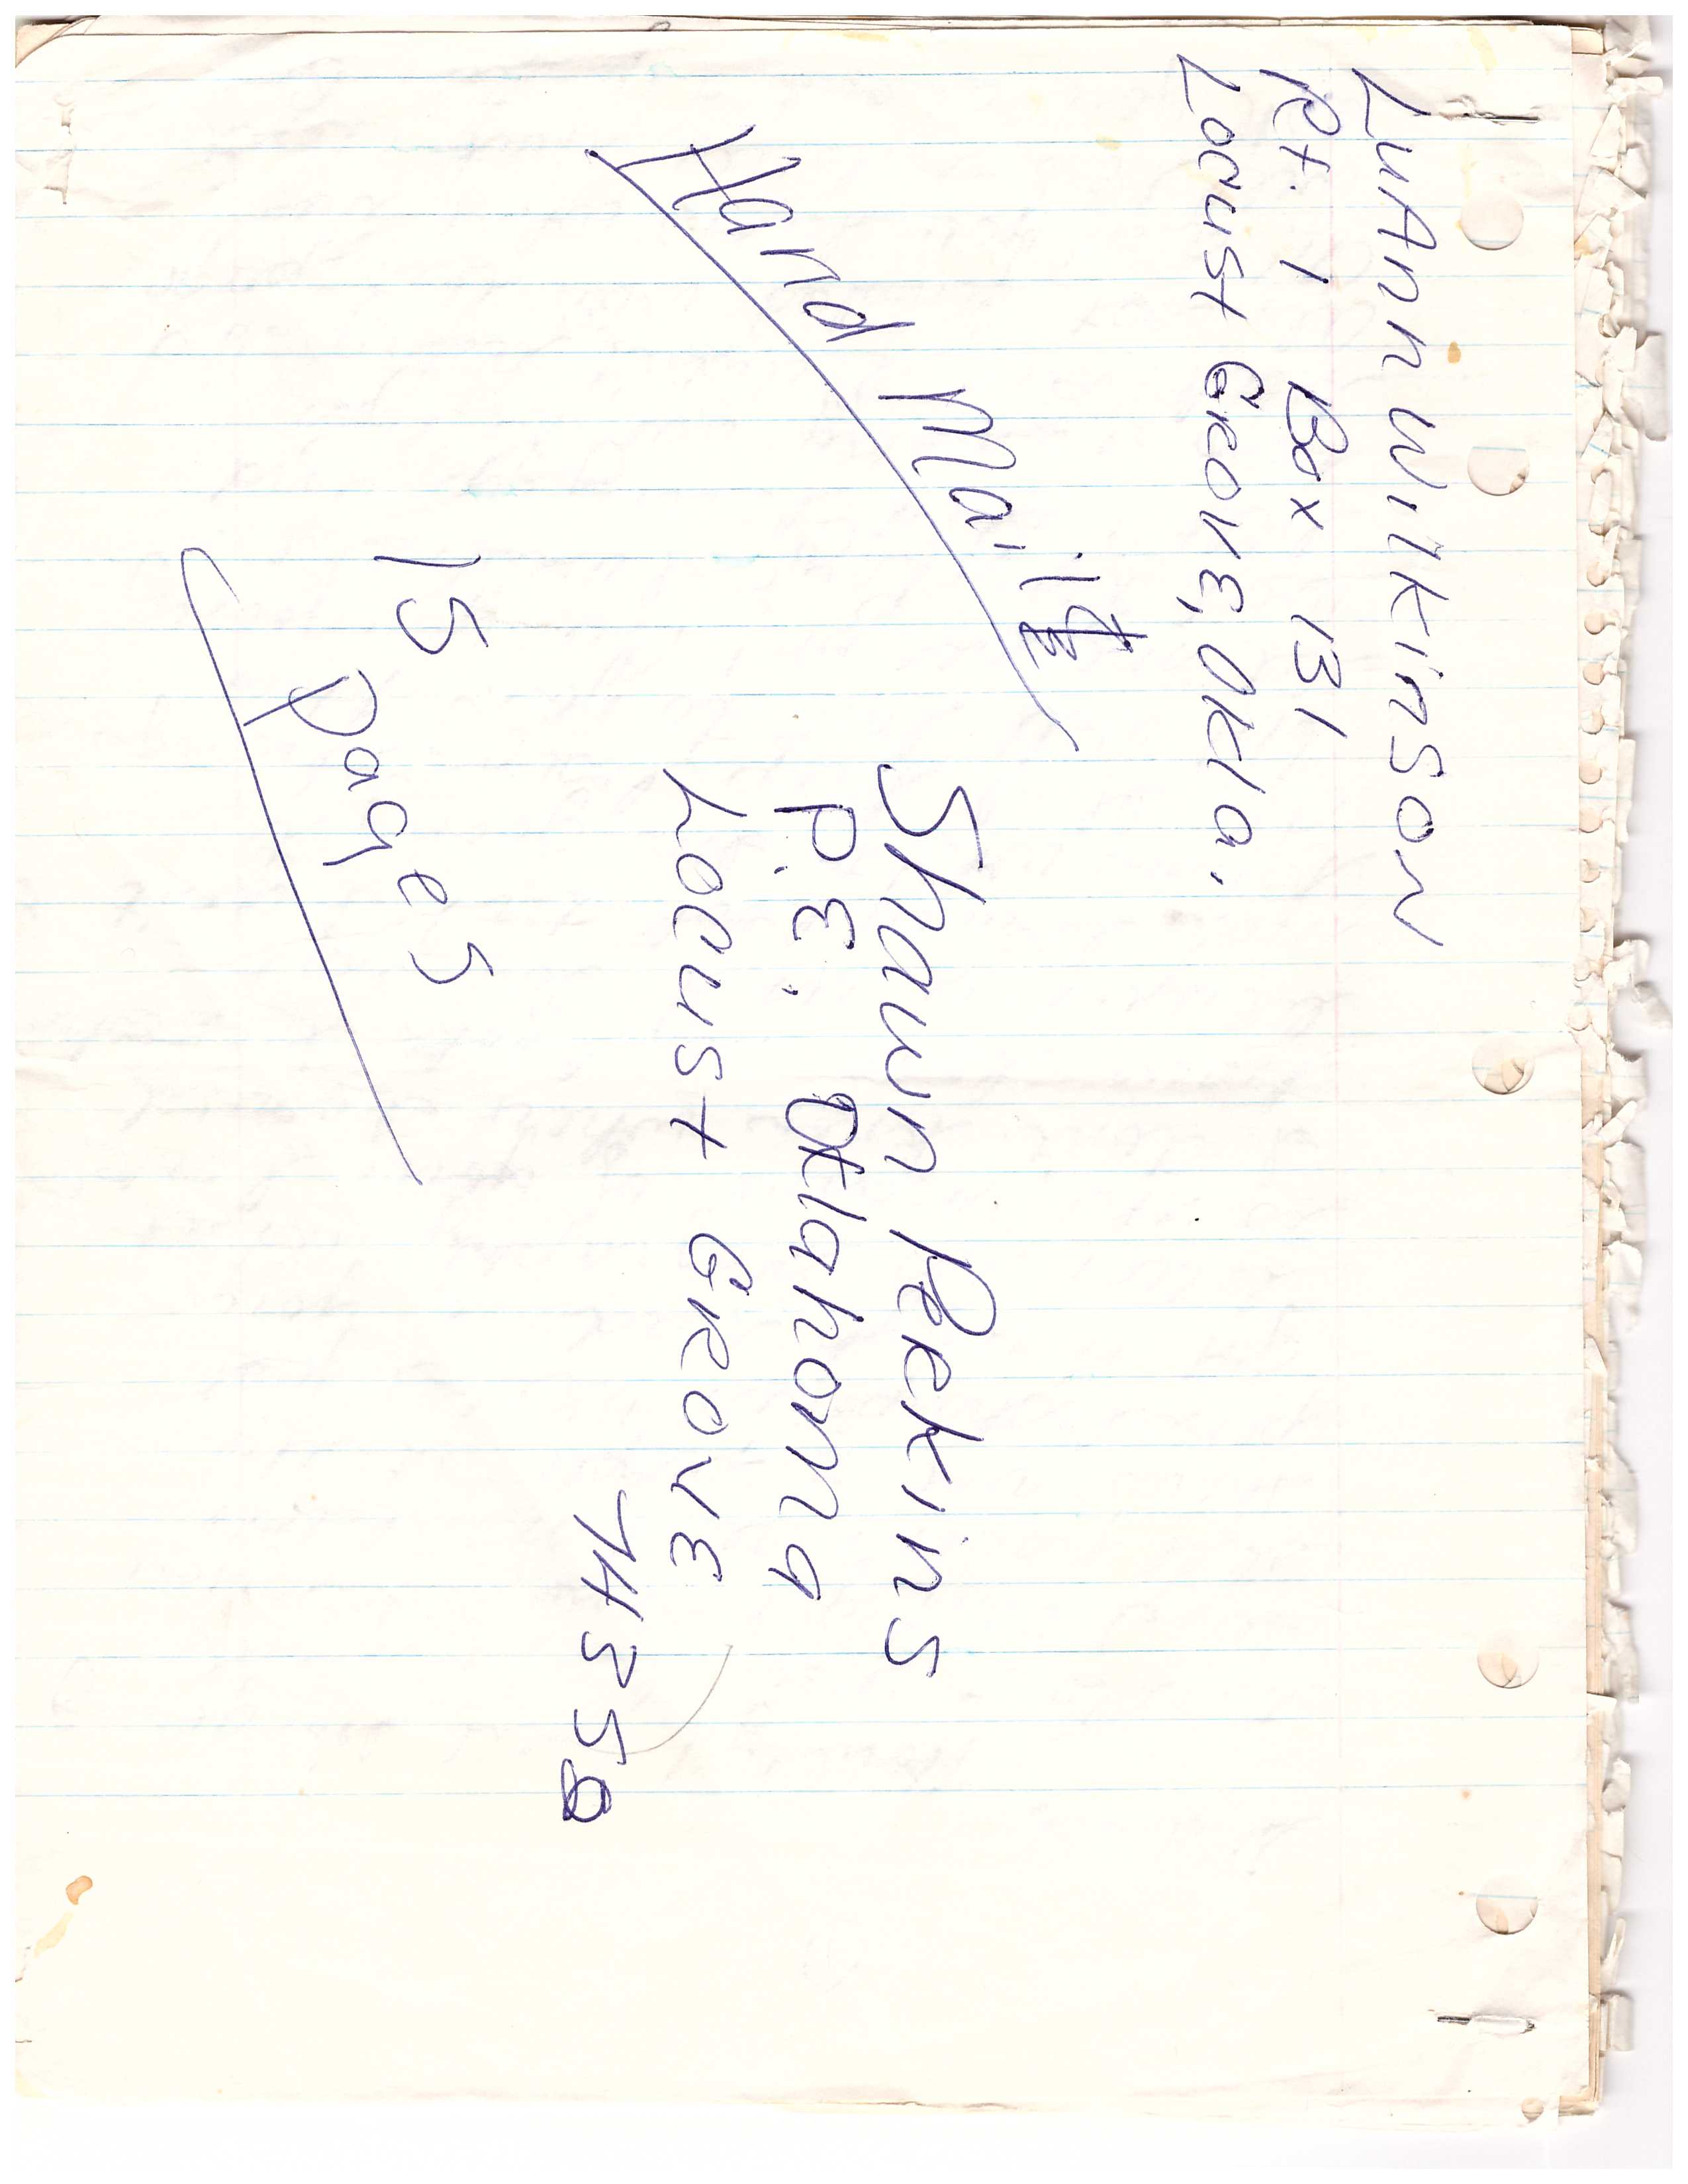 LuAnn Wilkinson
Rt. 1 Box 131
Locust Grove, Okla.
Hand Mail
Shawn Perkins
P.E. Oklahoma
Locust Grove
74358
15 pages